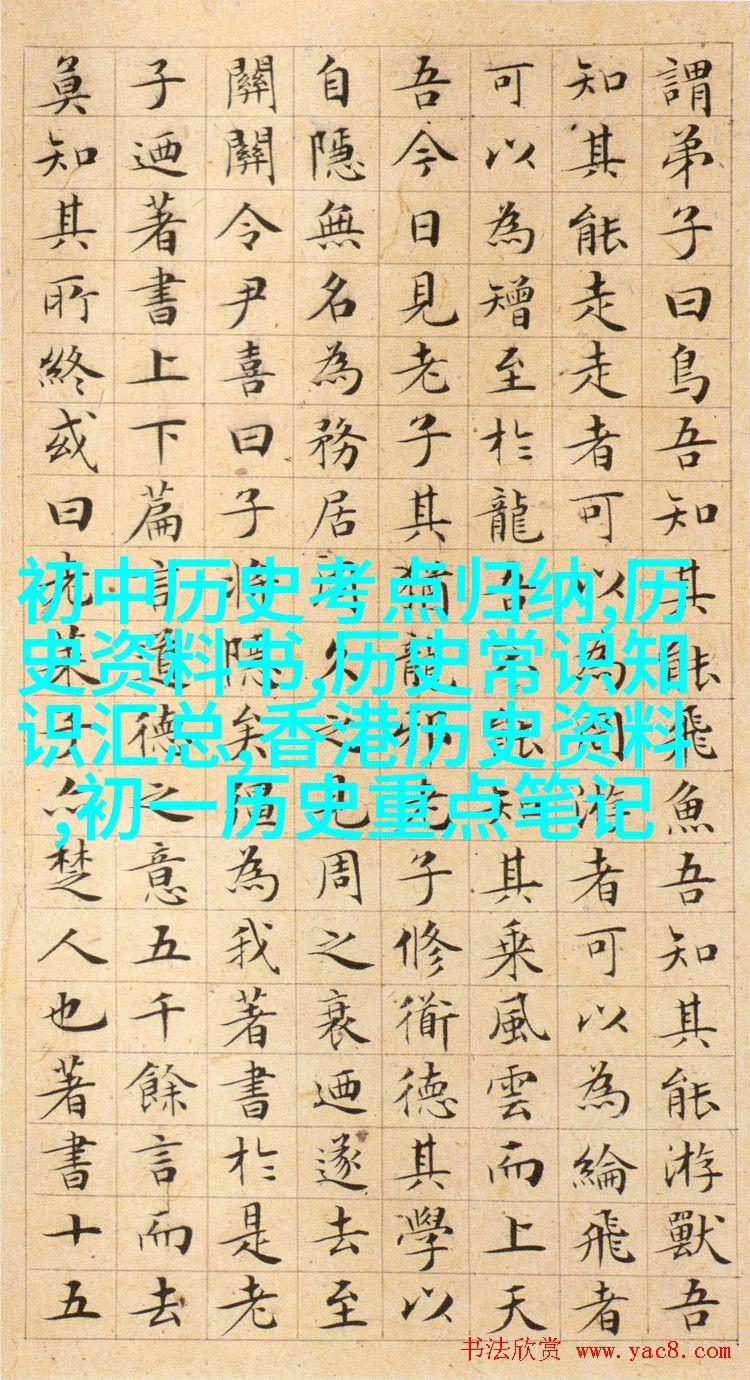 謂弟子曰鳥吾知其能飛魚吾知其能游獸吾
知其能走走者可以為罔游者可以為綸飛者
可以為矰至於龍吾不能知其乘風雲而上天
吾今日見老子其猶龍邪老子修衜德其學以
自隱無名為務居周久之見周之衰迺遂去至
關關令尹喜曰子將隱矣彊為我著書於是老
子迺著書上下篇言道德之意五千餘言而去
莫知其所終或曰老萊子亦楚人也著書十五
初中历史考点归纳,历
史资料书,历史常识知
识汇总,香港历史资料
,初一历史重点笔记
书法欣赏 www.yac8.com